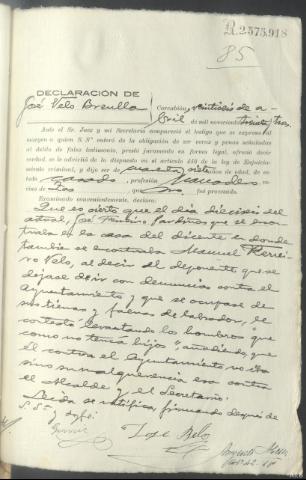 R.2575.918
85
DECLARACIÓN DE
José Velo Breulla
Carcabión, veintiséis de a-
bril de mil novecientos treinta y tres
Ante el Sr. Juez y mi Secretario compareció el testigo que se expresa al
margen a quien S. Sª enteró de la obligación de ser veraz y penas señaladas
al delito de falso testimonio, prestó juramento en forma legal, ofreció decir
verdad, se le advirtió de lo dispuesto en el artículo 446 de la ley de Enjuicia-
miento criminal, y dijo ser cuarenta siete años de edad, de es-
tado casado, profesión
cino de que no fué procesado.
Examinado convenientemente, declara:
Que es cierto que el día dieciséis del
actual, José
en la casa del dicente en donde
también se encontraba Manuel Ferrei-
ro Velo, al decir el deponente que se
dejase de ir con denuncias contra el
Ayuntamiento y que se ocupase de
sus tierras y faenas de labrador, le
contestó levantando los hombros "que
como no tenía hijos" añadiendo, que
él contra el Ayuntamiento no iba
sino su malquerencia era contra
el Alcalde y el Secretario.
Leída se ratifica, firmando después de
S. Sª y doy fé.
José Belo